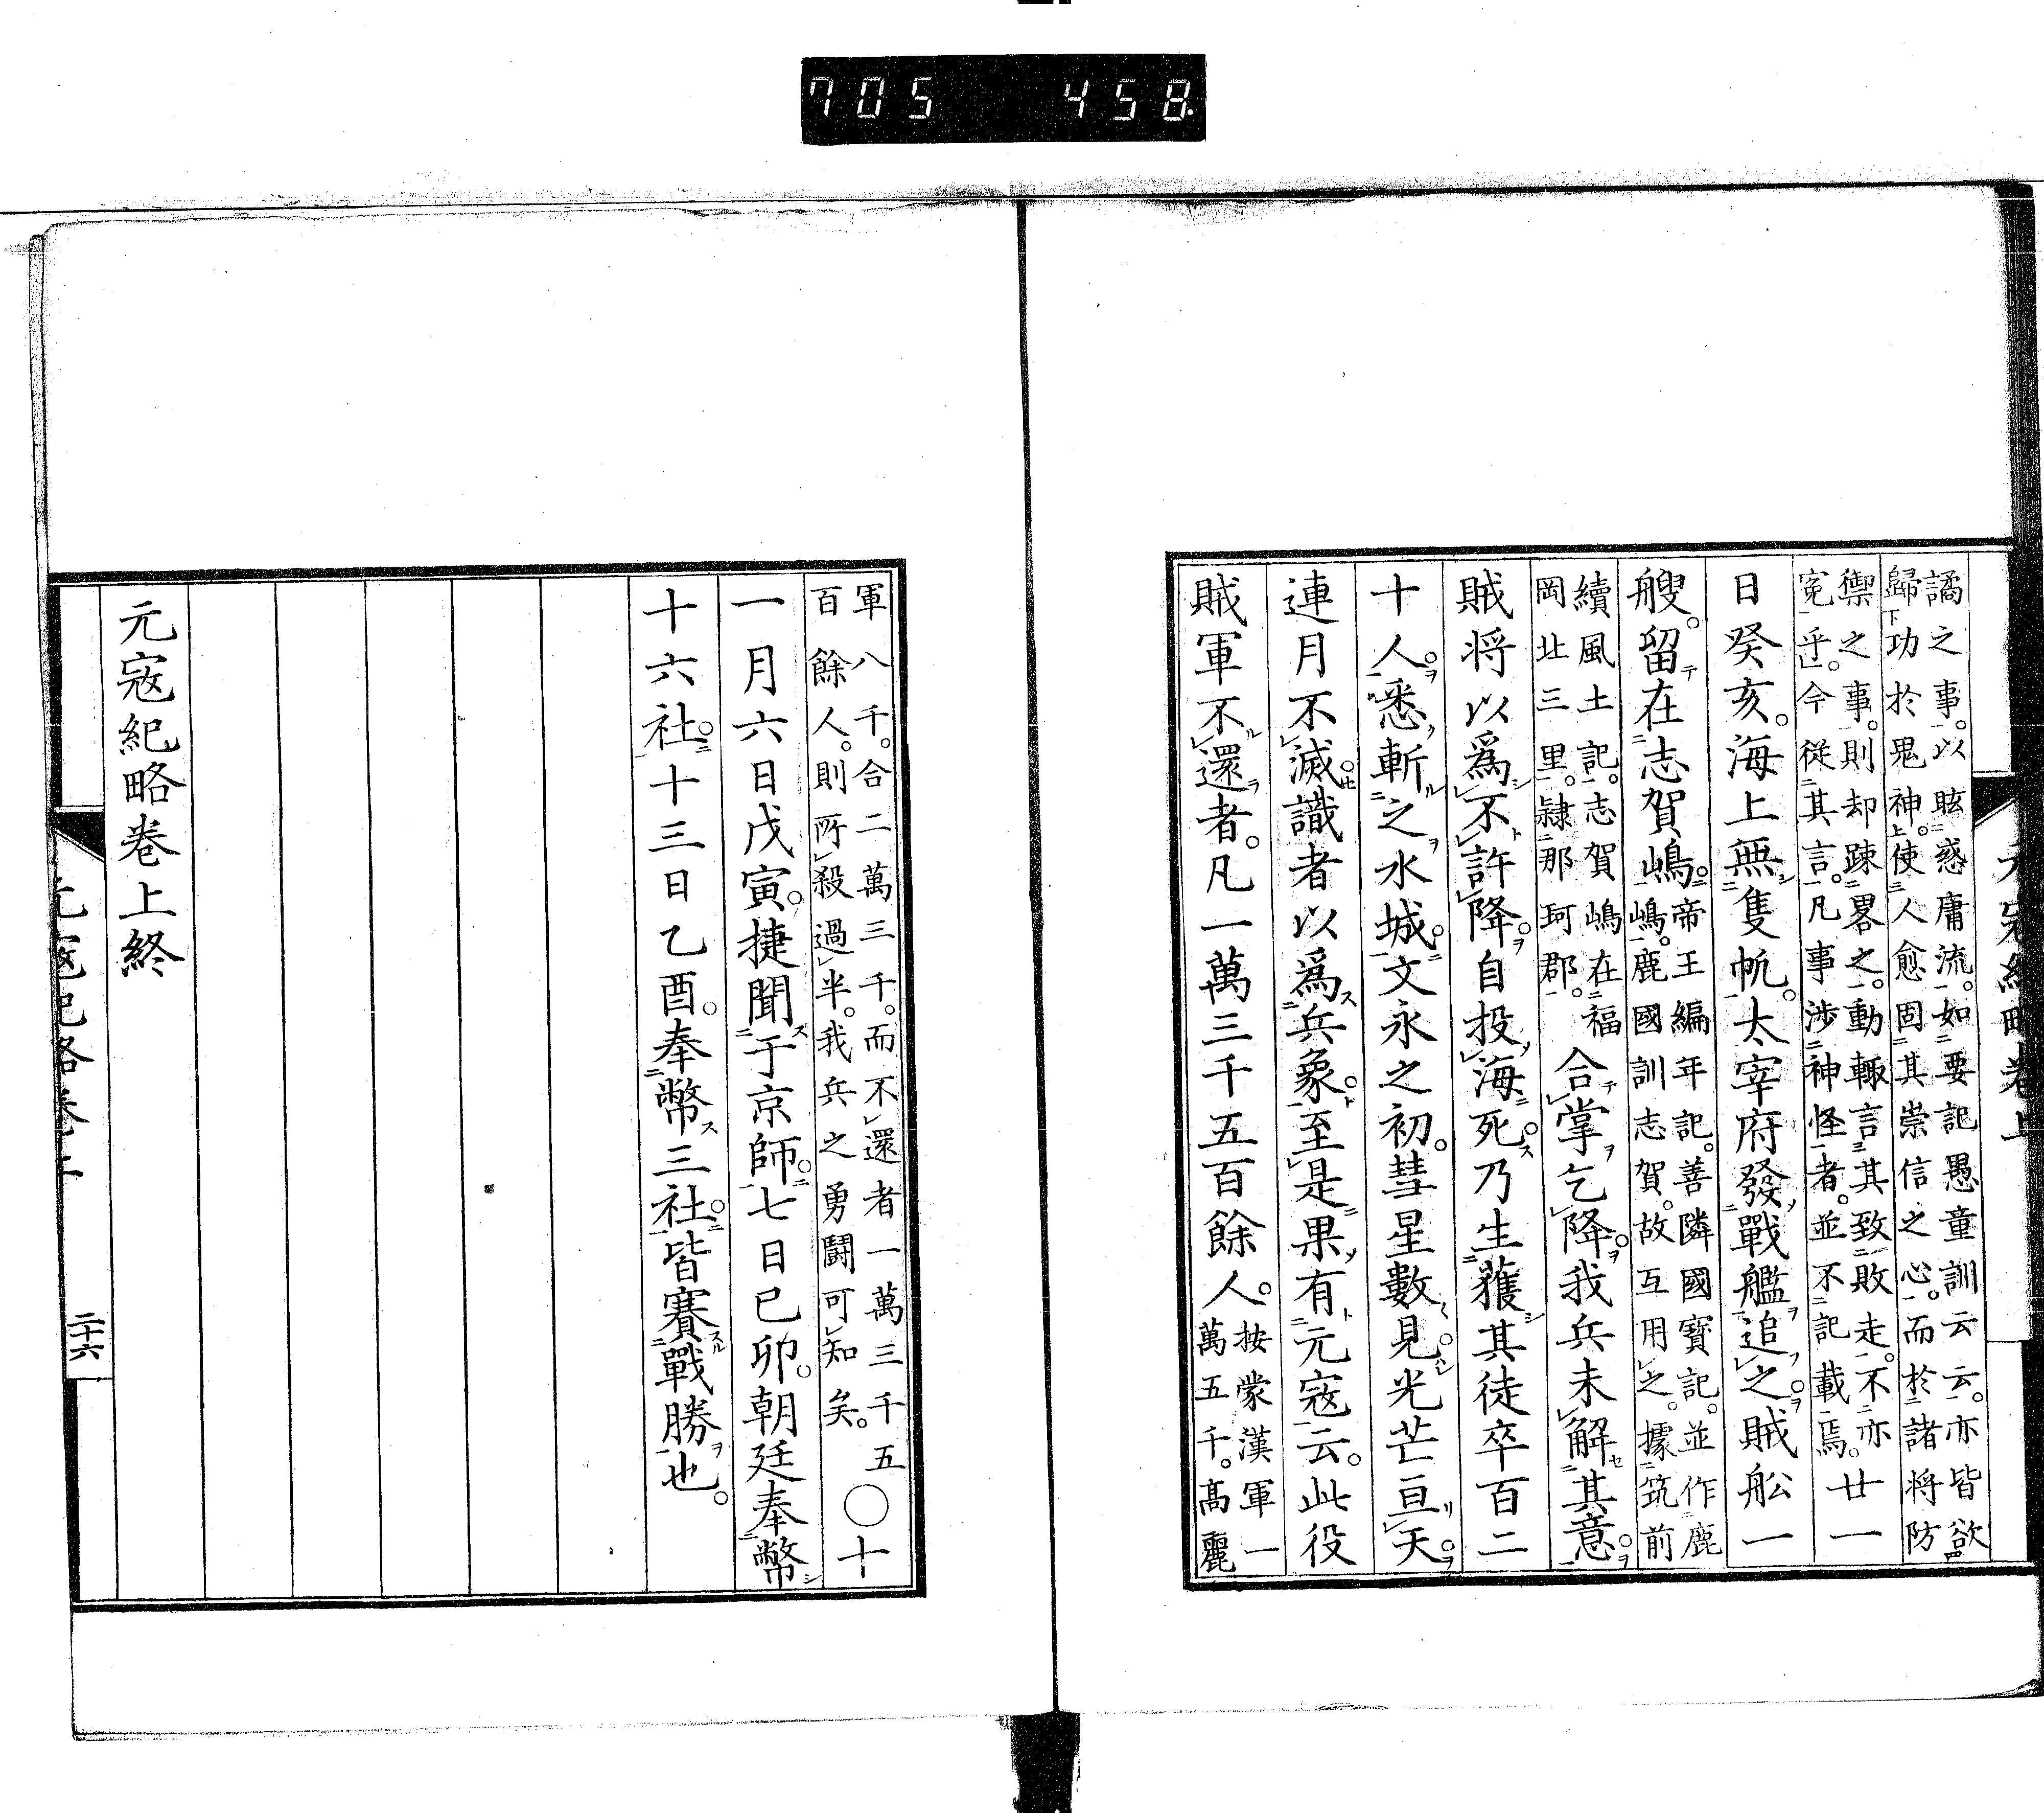 705 458
譎之事。以眩惑庸流。如要記愚童訓云云。亦皆欲
歸功於鬼神。使人愈固其崇信之心。而於諸將防
禦之事。則却疎畧之。動輙言其致敗走。不亦
寃乎。今從其言。凡事涉神怪者。並不記載焉。廿一
日癸亥。海上無隻帆。太宰府發戰艦追之。賊舩一
艘。留在志賀嶋。帝王編年記。善隣國寶記。並作鹿
嶋。鹿國訓志賀。故互用之。據筑前
續風土記。志賀嶋在福
岡北三里。隷那珂郡。合掌乞降。我兵未解其意。
賊将以爲不許降。自投海死。乃生獲其徒卒百二
十人。悉斬之水城。文永之初。彗星數見。光芒亘天。
連月不滅。識者以爲兵象。至是果有元寇云。此役
賊軍不還者。凡一萬三千五百餘人。按蒙漢軍一
萬五千。髙麗
軍八千。合二萬三千。而不還者一萬三千五
百餘人。則所殺過半。我兵之勇鬪可知矣。〇十
一月六日戊寅。捷聞于京師。七日己卯。朝廷奉幣
十六社。十三日乙酉。奉幣三社。皆賽戰勝也。
元寇紀略卷上終
元寇紀略卷上
二十六